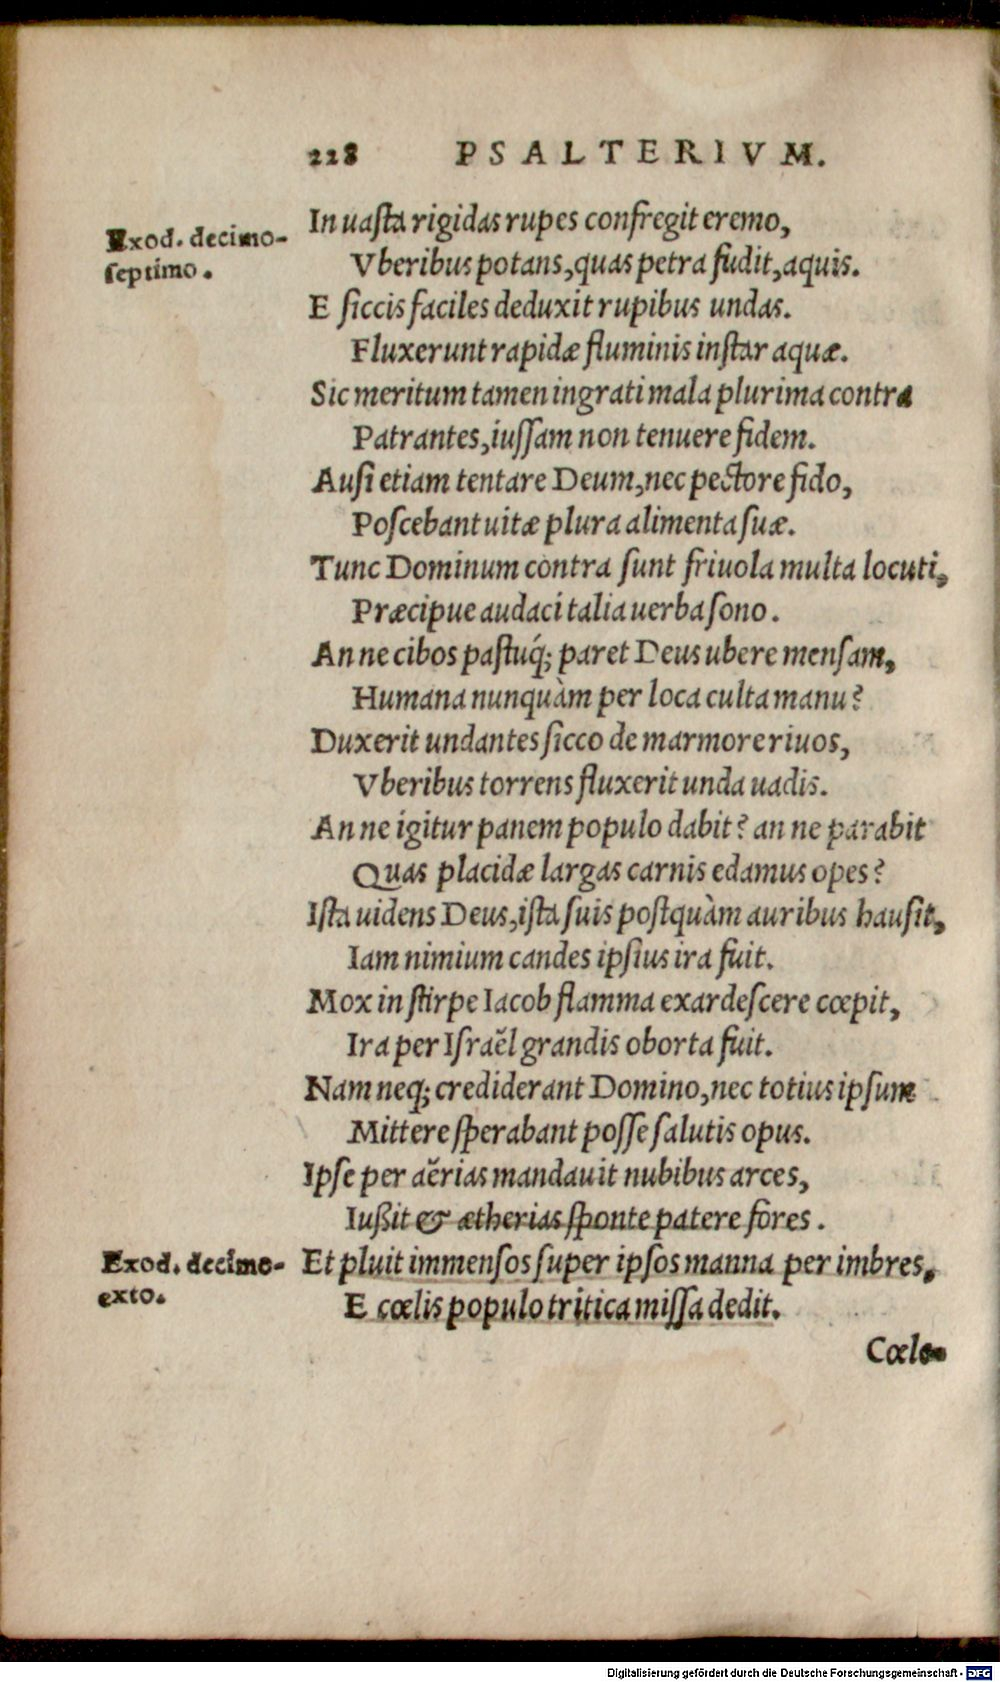 228 PSALTERIVM.
In uasta rigidas rupes confregit eremo,
Exod. decimo-
septimo.
Vberibus potans, quas petra fudit, aquis.
E siccis faciles deduxit rupibus undas.
Fluxerunt rapidæ fluminis instar aquæ.
Sic meritum tamen ingrati mala plurima contra
Patrantes, iussam non tenuere fidem.
Ausi etiam tentare Deum, nec pectore fido,
Poscebant uitæ plura alimenta suæ.
Tunc Dominum contra sunt friuola multa locuti,
Præcipue audaci talia uerba sono.
An ne cibos pastuq́; paret Deus ubere mensam,
Humana nunquàm per loca culta manu?
Duxerit undantes sicco de marmore riuos,
Vberibus torrens fluxerit unda uadis.
An ne igitur panem populo dabit? an ne parabit
Quas placidæ largas carnis edamus opes?
Ista uidens Deus, ista suis postquàm auribus hausit,
Iam nimium candes ipsius ira fuit.
Mox in stirpe Iacob flamma exardescere cœpit,
Ira per Israël grandis oborta fuit.
Nam neq; crediderant Domino, nec totius ipsum
Mittere sperabant posse salutis opus.
Ipse per aërias mandauit nubibus arces,
Iußit & ætherias sponte patere fores.
Exod. decimo-
exto.
Et pluit immensos super ipsos manna per imbres,
E cœlis populo tritica missa dedit.
Cœle-
Digitalisierung gefördert durch die Deutsche Forschungsgemeinschaft - DFG